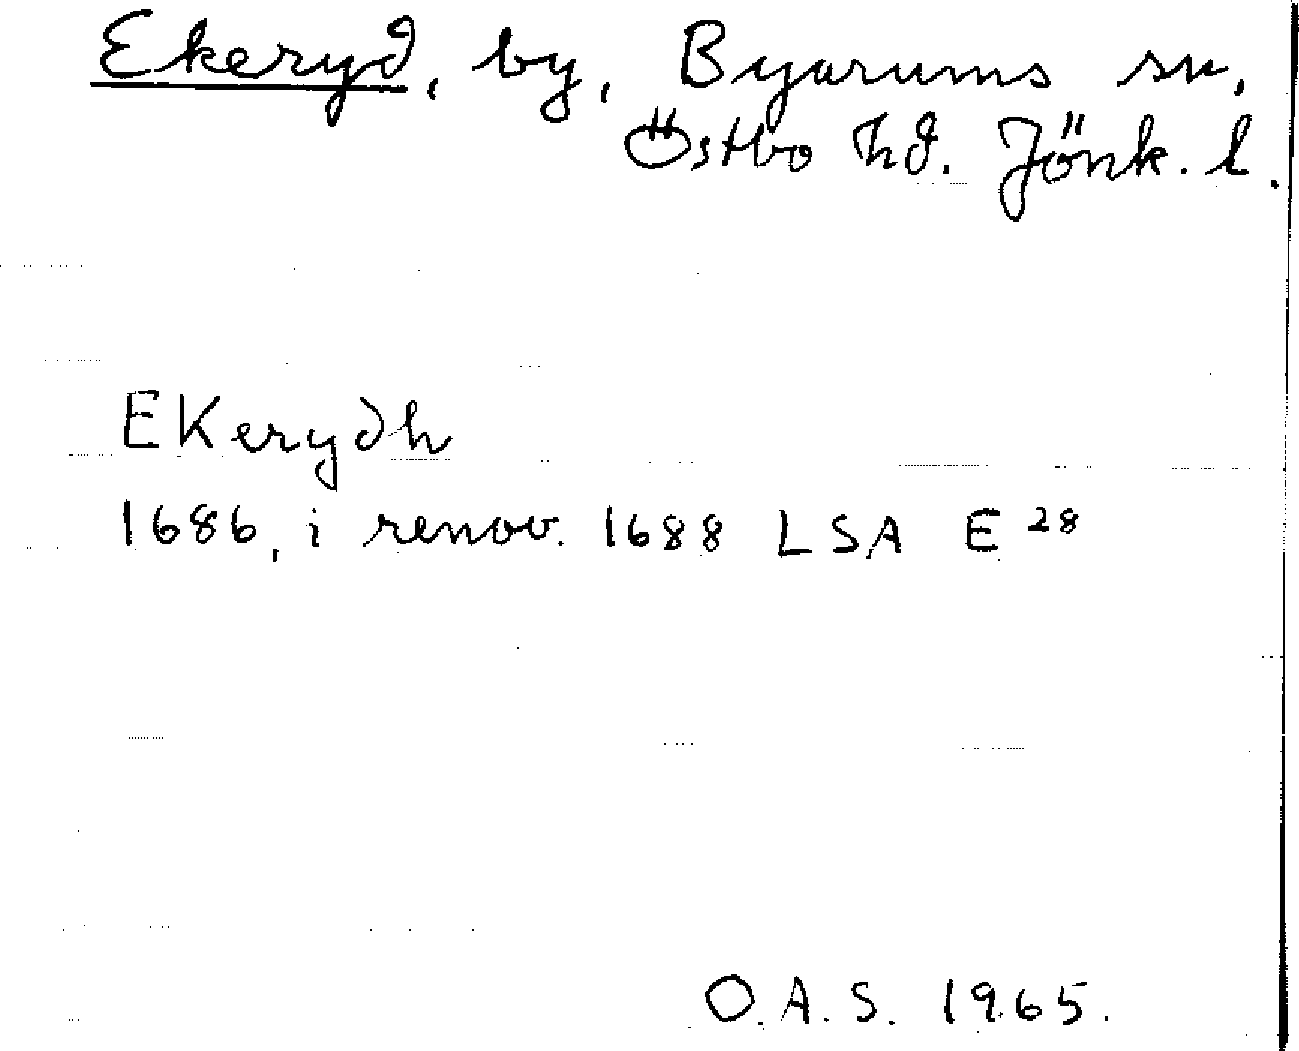 Ekeryd, by, Byarums sn,
Östbo hd. Jönk. l.
EKerydh
1686, i renov. 1688 LSA E 28
O.A.S. 1965.